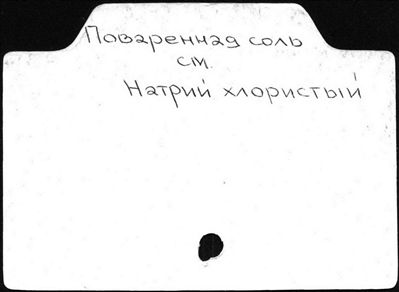 Поваренная соль
см.
Натрий хлористый